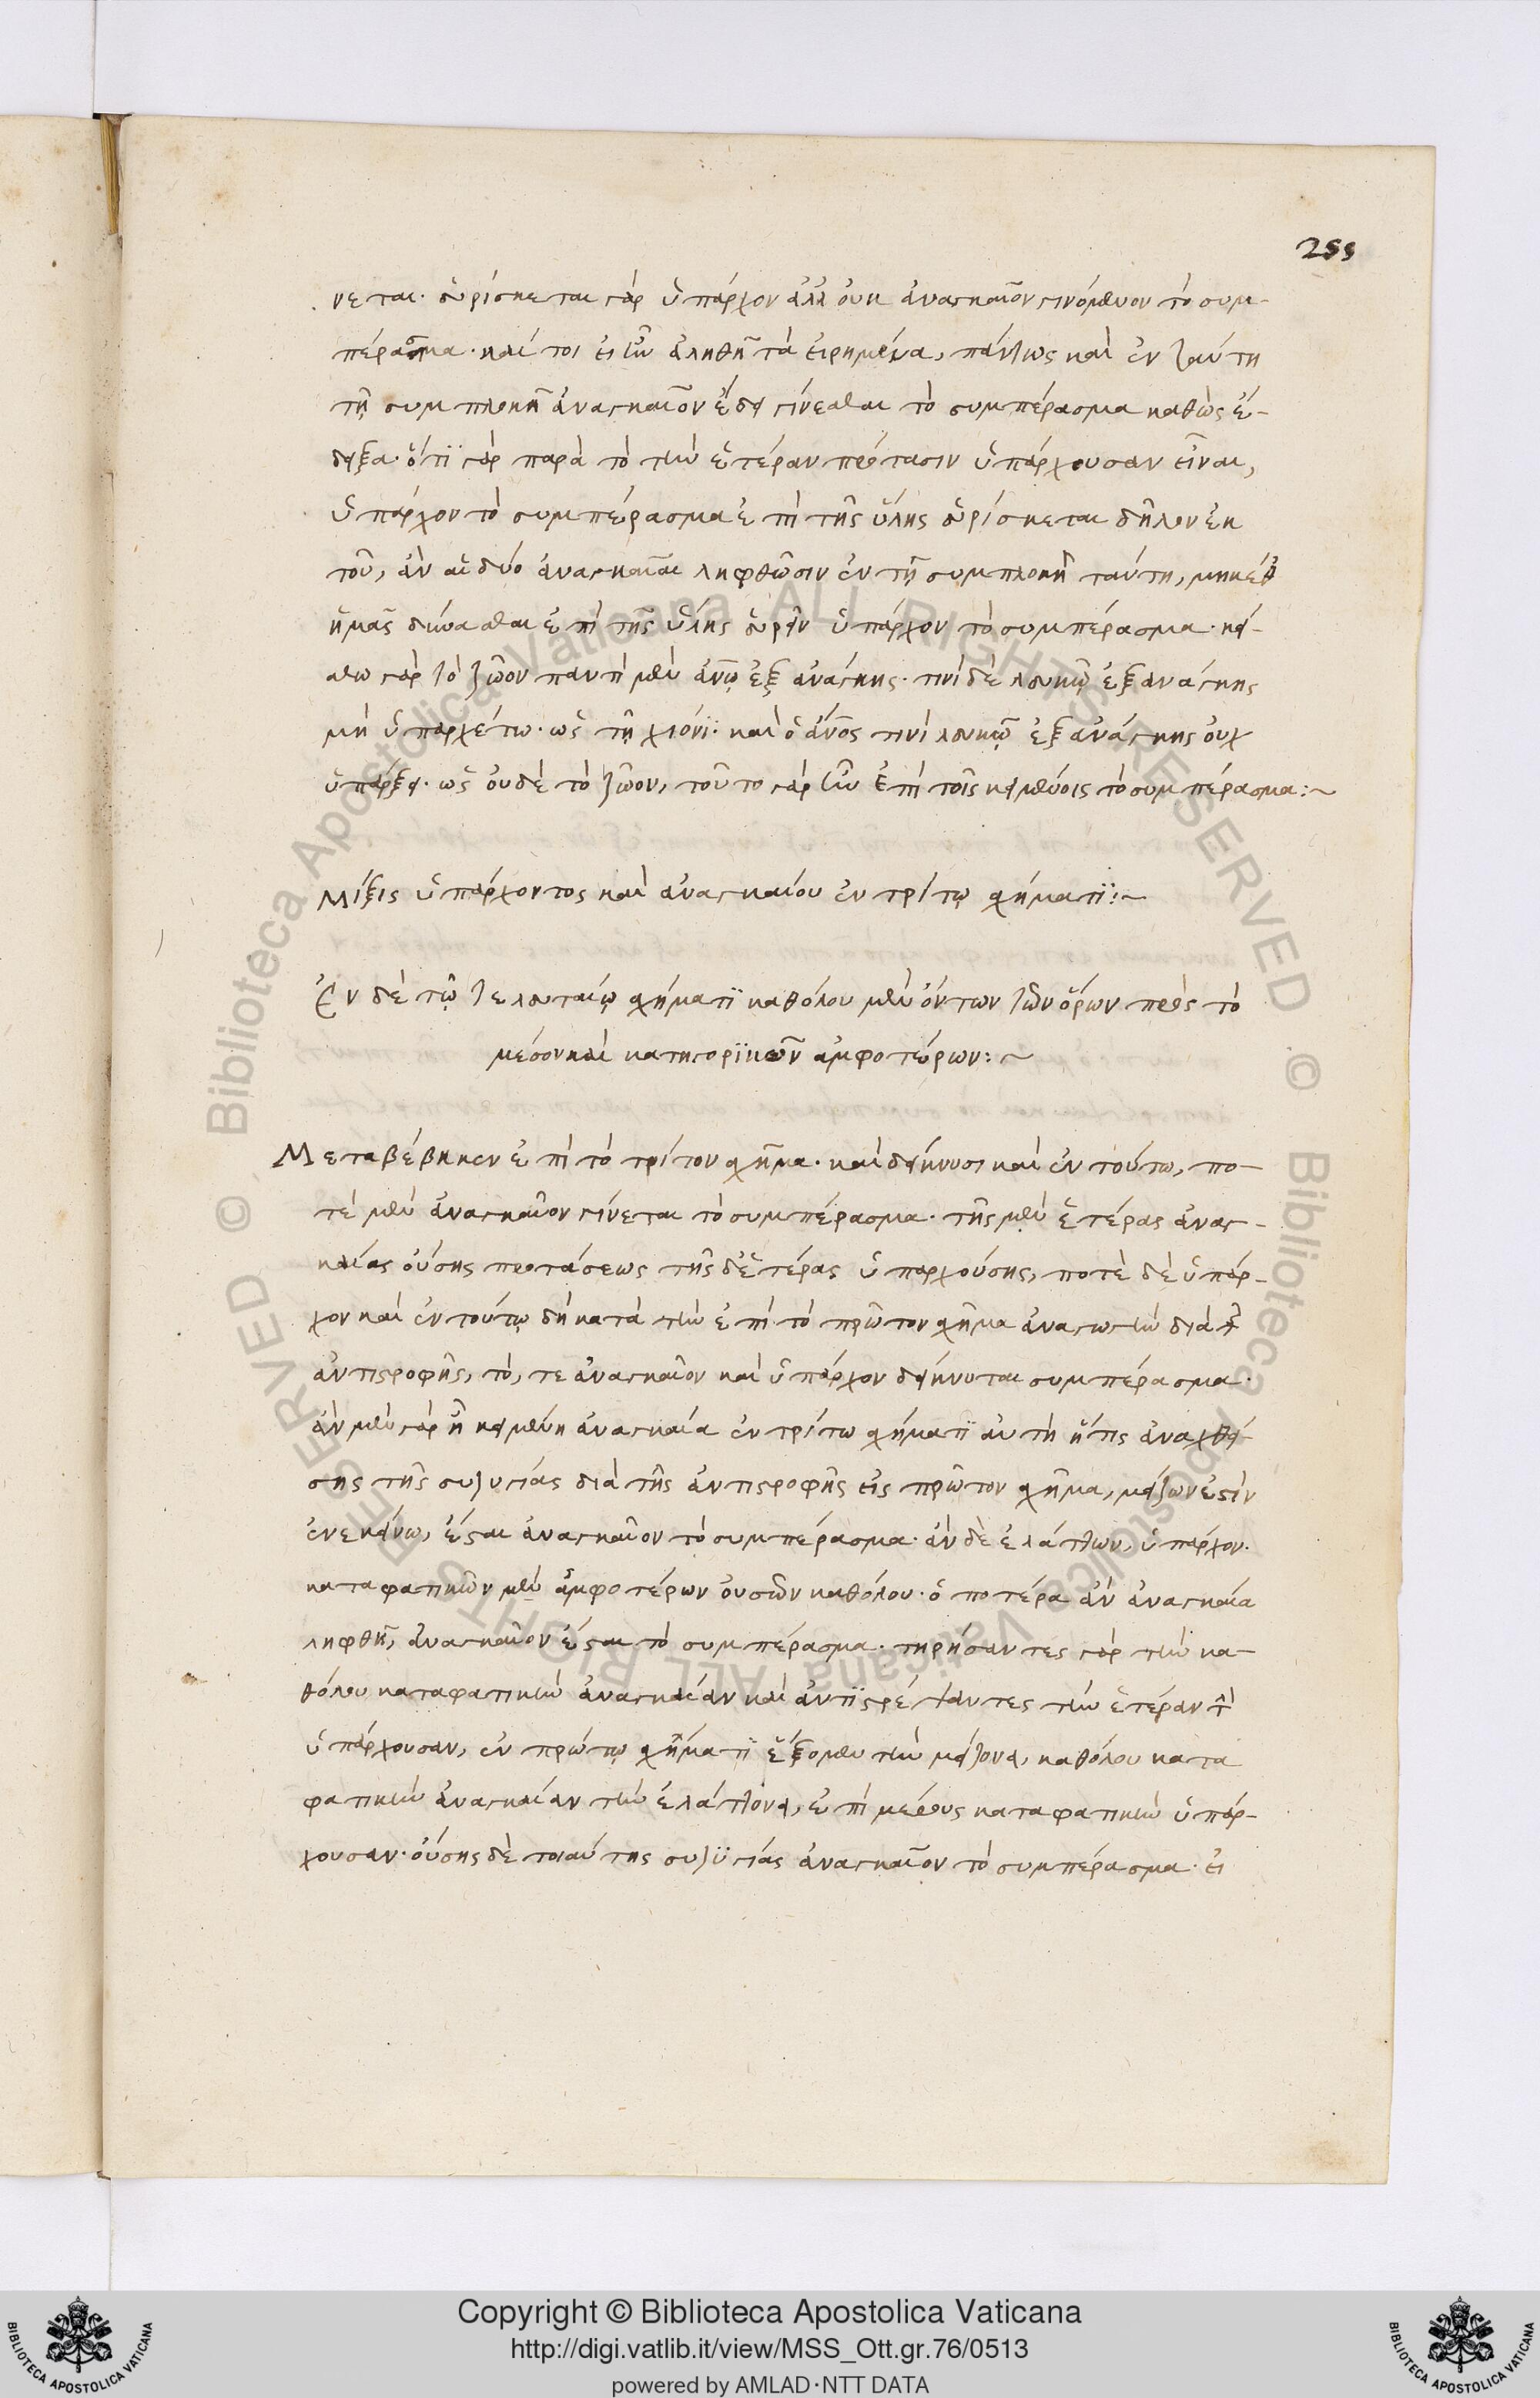 255
νεται· εὑρίσκεται γὰρ ὑπάρχον ἀλλ οὐκ ἀναγκαῖον γινόμενον τὸ συμ-
πέρασμα· καί τοι εἰ ἦν ἀληθῆ τὰ εἰρημένα, πάντως καὶ ἐν ταύτη
τῆ συμπλοκῆ ἀναγκαῖον ἔδει γίνεσθαι τὸ συμπέρασμα καθὼς ἔ-
δειξα· ὅτϊ γὰρ παρὰ τὸ τὴν ἑτέραν πρότασιν ὑπάρχουσαν εἶναι,
ὑπάρχον τὸ συμπέρασμα ἐπὶ τῆς ὕλης εὑρίσκεται δῆλον ἐκ
τοῦ, ἂν αἱ δύο ἀναγκαῖαι ληφθῶσιν ἐν τῆ συμπλοκῆ ταύτη, μηκέθ
ἡμᾶς δύνασθαι ἐπὶ τῆς ὕλης εὑρεῖν ὑπάρχον τὸ συμπέρασμα· κεί-
σθω γὰρ τὸ ζῶον παντὶ μὲν ἀνῳ ἐξ ἀνάγκης· τινὶ δὲ λευκῷ ἐξ ἀνάγκης
μὴ ὑπαρχέτω· ὡς τῆ χιόνϊ· καὶ ὁ ἄνος τινὶ λευκῷ ἐξ ἀνάγκης οὐχ
ὑπάρξει· ὡς οὐδὲ τὸ ζῶον, τοῦτο γὰρ ἦν ἐπὶ τοῖς κειμένοις τὸ συμπέρασμα:~
Μίξις ὑπάρχοντος καὶ ἀναγκαίου ἐν τρίτῳ σχήματϊ:~
Ἐν δὲ τῷ τελευταίῳ σχήματϊ καθόλου μὲν ὄντων τῶν ὅρων πρὸς τὸ
μέσον καὶ κατηγορϊκῶν ἀμφοτέρων:~
Μεταβέβηκεν ἐπὶ τὸ τρίτον σχῆμα· καὶ δείκνυσι καὶ ἐν τούτω, πο-
τὲ μὲν ἀναγκαῖον γίνεται τὸ συμπέρασμα· τῆς μὲν ἑτέρας ἀναγ-
καίας οὔσης προτάσεως τῆς δ ἑτέρας ὑπαρχούσης, ποτὲ δὲ ὑπάρ-
χον καὶ ἐν τούτῳ δὴ κατὰ τὴν ἐπὶ τὸ πρῶτον σχῆμα ἀναγωγὴν διὰ τῆς
ἀντιστροφῆς, τό, τε ἀναγκαῖον καὶ ὑπάρχον δείκνυται συμπέρασμα·
ἂν μὲν γὰρ ἦ κειμένη ἀναγκαία ἐν τρίτω σχήματϊ αὐτὴ ἥτις ἀναχθεί-
σης τῆς συζυγίας διὰ τῆς ἀντιστροφῆς εἰς πρῶτον σχῆμα, μείζων ἐστὶν
ἐν ἐκείνω, ἔσται ἀναγκαῖον τὸ συμπέρασμα· ἂν δὲ ἐλάττων, ὑπάρχον·
καταφατικῶν μὲν ἀμφοτέρων οὐσῶν καθόλου· ὁποτέρα ἂν ἀναγκαία
ληφθῆ, ἀναγκαῖον ἔσται τὸ συμπέρασμα· τηρήσαντες γὰρ τὴν κα-
θόλου καταφατικὴν ἀναγκαίαν καὶ ἀντϊστρέψαντες τὴν ἑτέραν τὴν
ὑπάρχουσαν, ἐν πρώτῳ σχήματϊ ἕξομεν τὴν μείζονα, καθόλου κατα
φατικὴν ἀναγκαίαν τὴν ἐλάττονα, ἐπὶ μέρους καταφατικὴν ὑπάρ-
χουσαν· οὔσης δὲ τοιαύτης συζϋγίας ἀναγκαῖον τὸ συμπέρασμα· εἰ
Copyright © Biblioteca Apostolica Vaticana
http://digi.vatlib.it/view/MSS_Ott.gr.76/0513
powered by AMLAD·NTT DATA